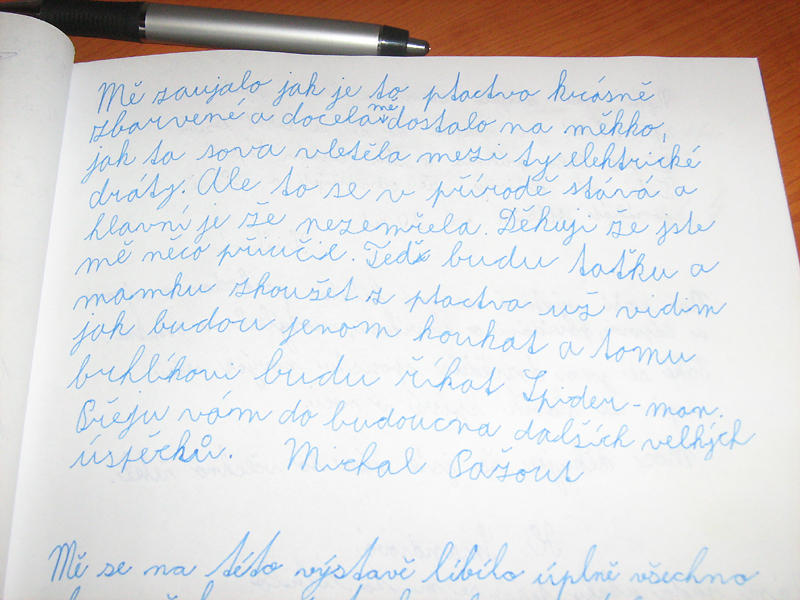 Mě zaujalo jak je to ptactvo krásně
zbarvené a docela mě dostalo na měkko,
jak ta sova vletěla mezi ty elektrické
dráty. Ale to se v přírodě stává a
hlavní je že nezemřela. Děkuji že jste
mě něco přiučil. Teď budu taťku a
mamku zkoušet z ptactva už vidim
jak budou jenom koukat a tomu
brhlíkovi budu říkat Spider-man.
Přeju vám do budoucna dalších velkých
úspěchů. Michal Pažout
Mě se na této výstavě líbílo úplně všechno